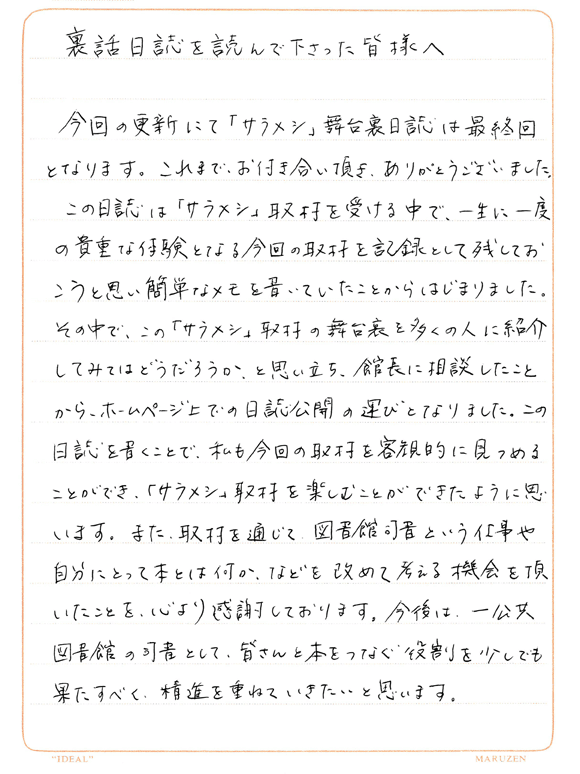 裏話日誌を読んで下さった皆様へ
今回の更新にて「サラメシ」舞台裏日誌は最終回
となります。これまで、お付き合い頂き、ありがとうございました。
この日誌は「サラメシ」取材を受ける中で、一生に一度
の貴重な体験となる今回の取材を記録として残してお
こうと思い簡単なメモを書いていたことからはじまりました。
その中で、この「サラメシ」取材の舞台裏を多くの人に紹介
してみてはどうだろうか、と思い立ち、館長に相談したこと
から、ホームページ上での日誌公開の運びとなりました。この
日誌を書くことで、私も今回の取材を客観的に見つめる
ことができ、「サラメシ」取材を楽しむことができたように思
います。また、取材を通じて、図書館司書という仕事や
自分にとって本とは何か、などを改めて考える機会を頂
いたことを、心より感謝しております。今後は、一公共
図書館の司書として、皆さんと本をつなぐ役割を少しでも
果たすべく、精進を重ねていきたいと思います。
"IDEAL" MARUZEN